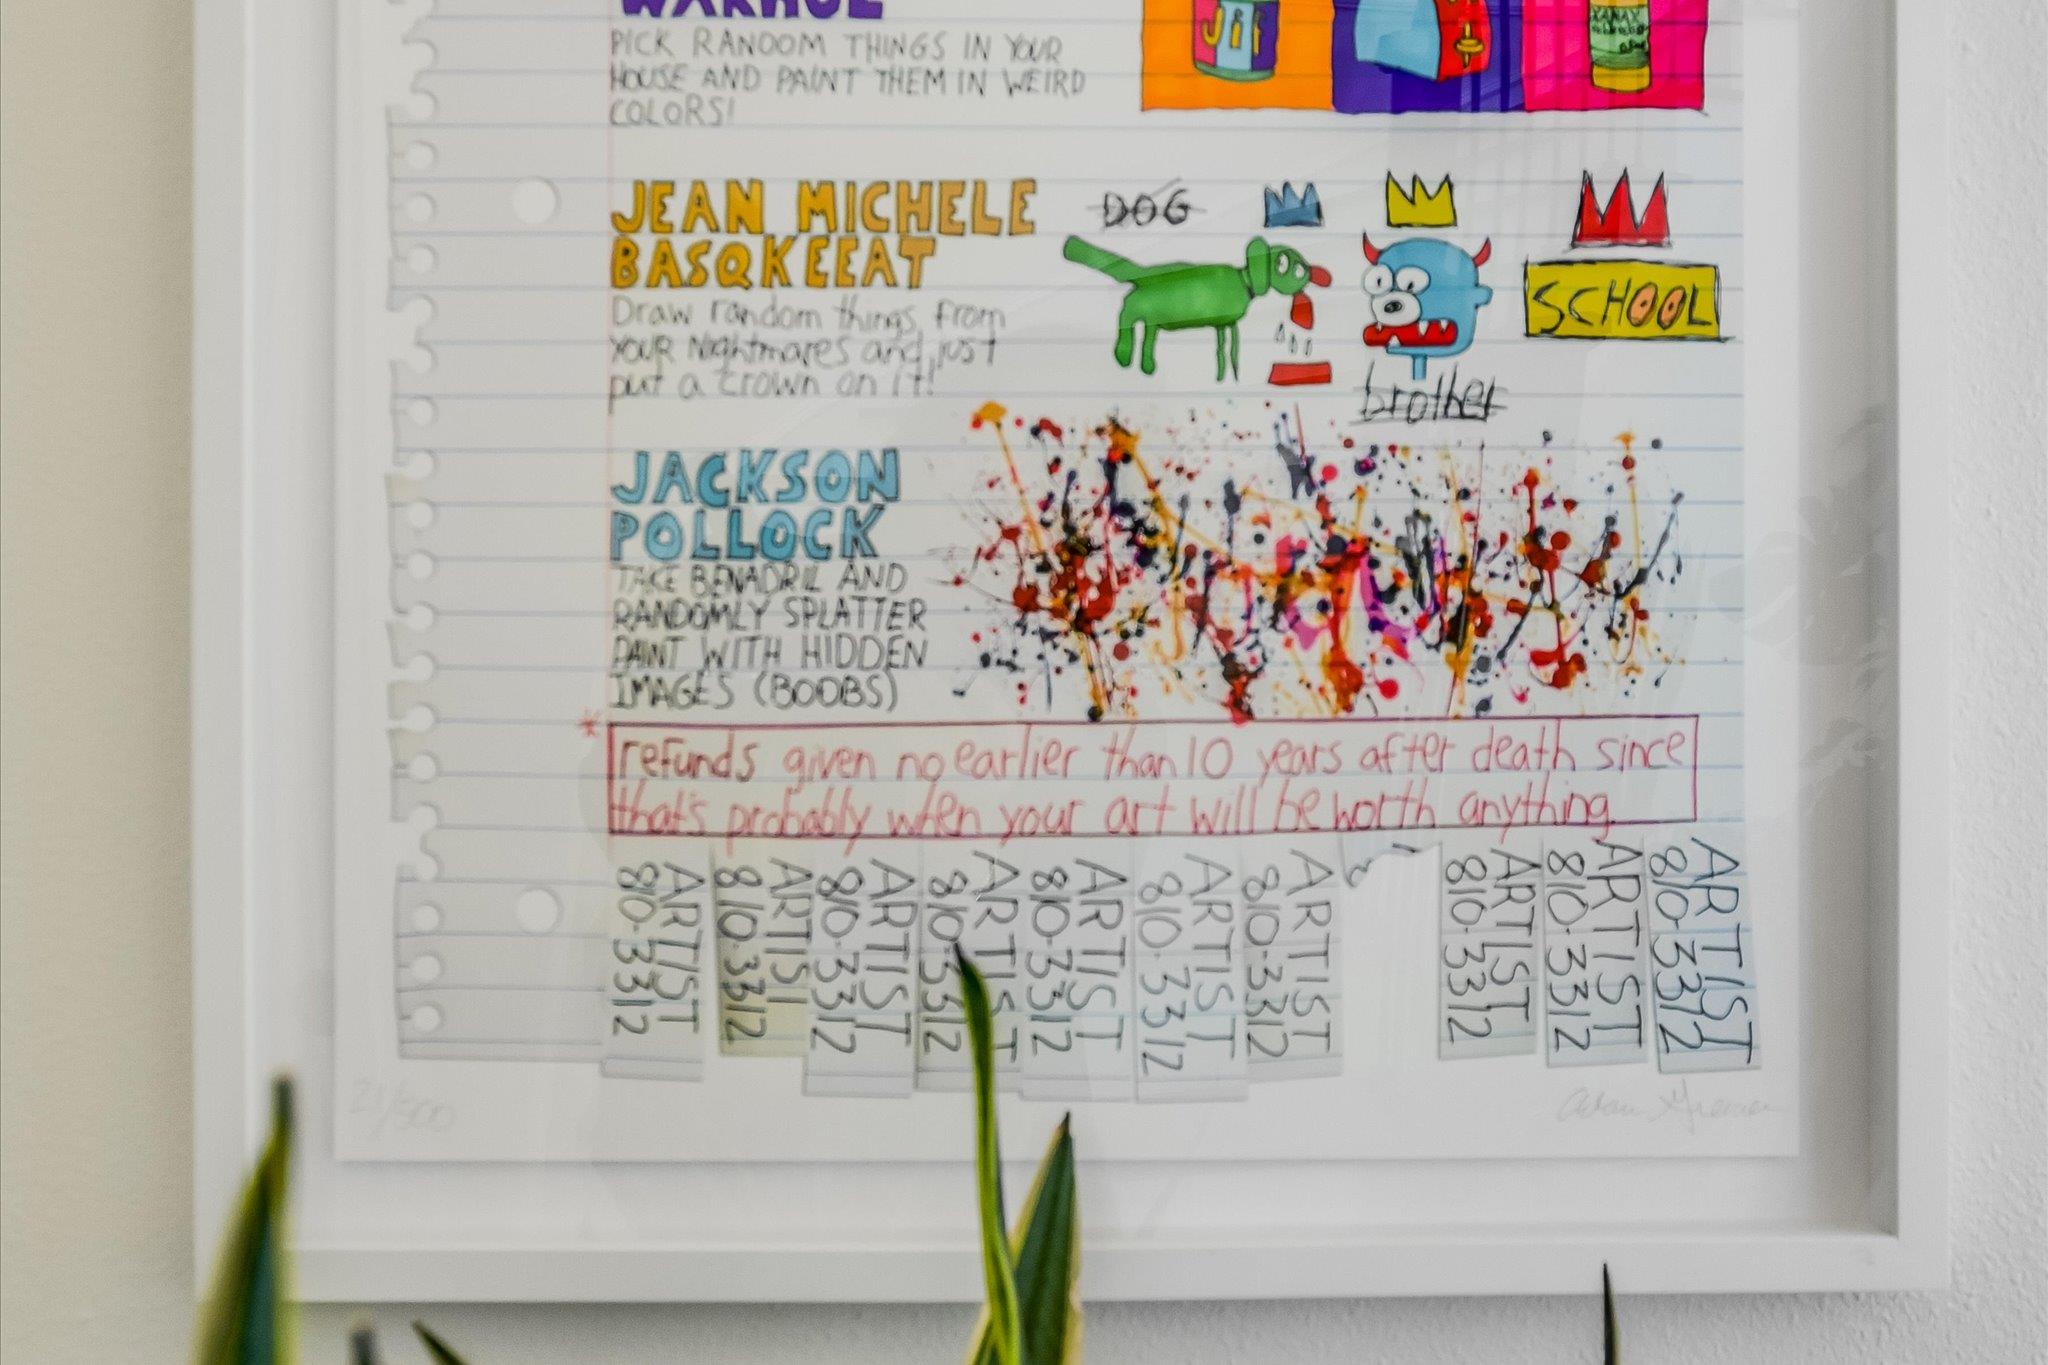 WARHOL
PICK RANDOM THINGS IN YOUR
HOUSE AND PAINT THEM IN WEIRD
COLORS!
Jif
XANAX
JEAN MICHELE
BASQKEEAT
Draw random things from
YOUR Nightmares and just
put a crown on it!
DOG
SCHOOL
brother
JACKSON
POLLOCK
TAKE BENADRIL AND
RANDOMLY SPLATTER
PAINT WITH HIDDEN
IMAGES (BOOBS)
* refunds given no earlier than 10 years after death since
that's probably when your art will be worth anything.
ARTIST
810-3312
ARTIST
810-3312
ARTIST
810-3312
ARTIST
810-3312
ARTIST
810-3312
ARTIST
810-3312
ARTIST
810-3312
ARTIST
810-3312
ARTIST
810-3312
ARTIST
810-3312
21/500